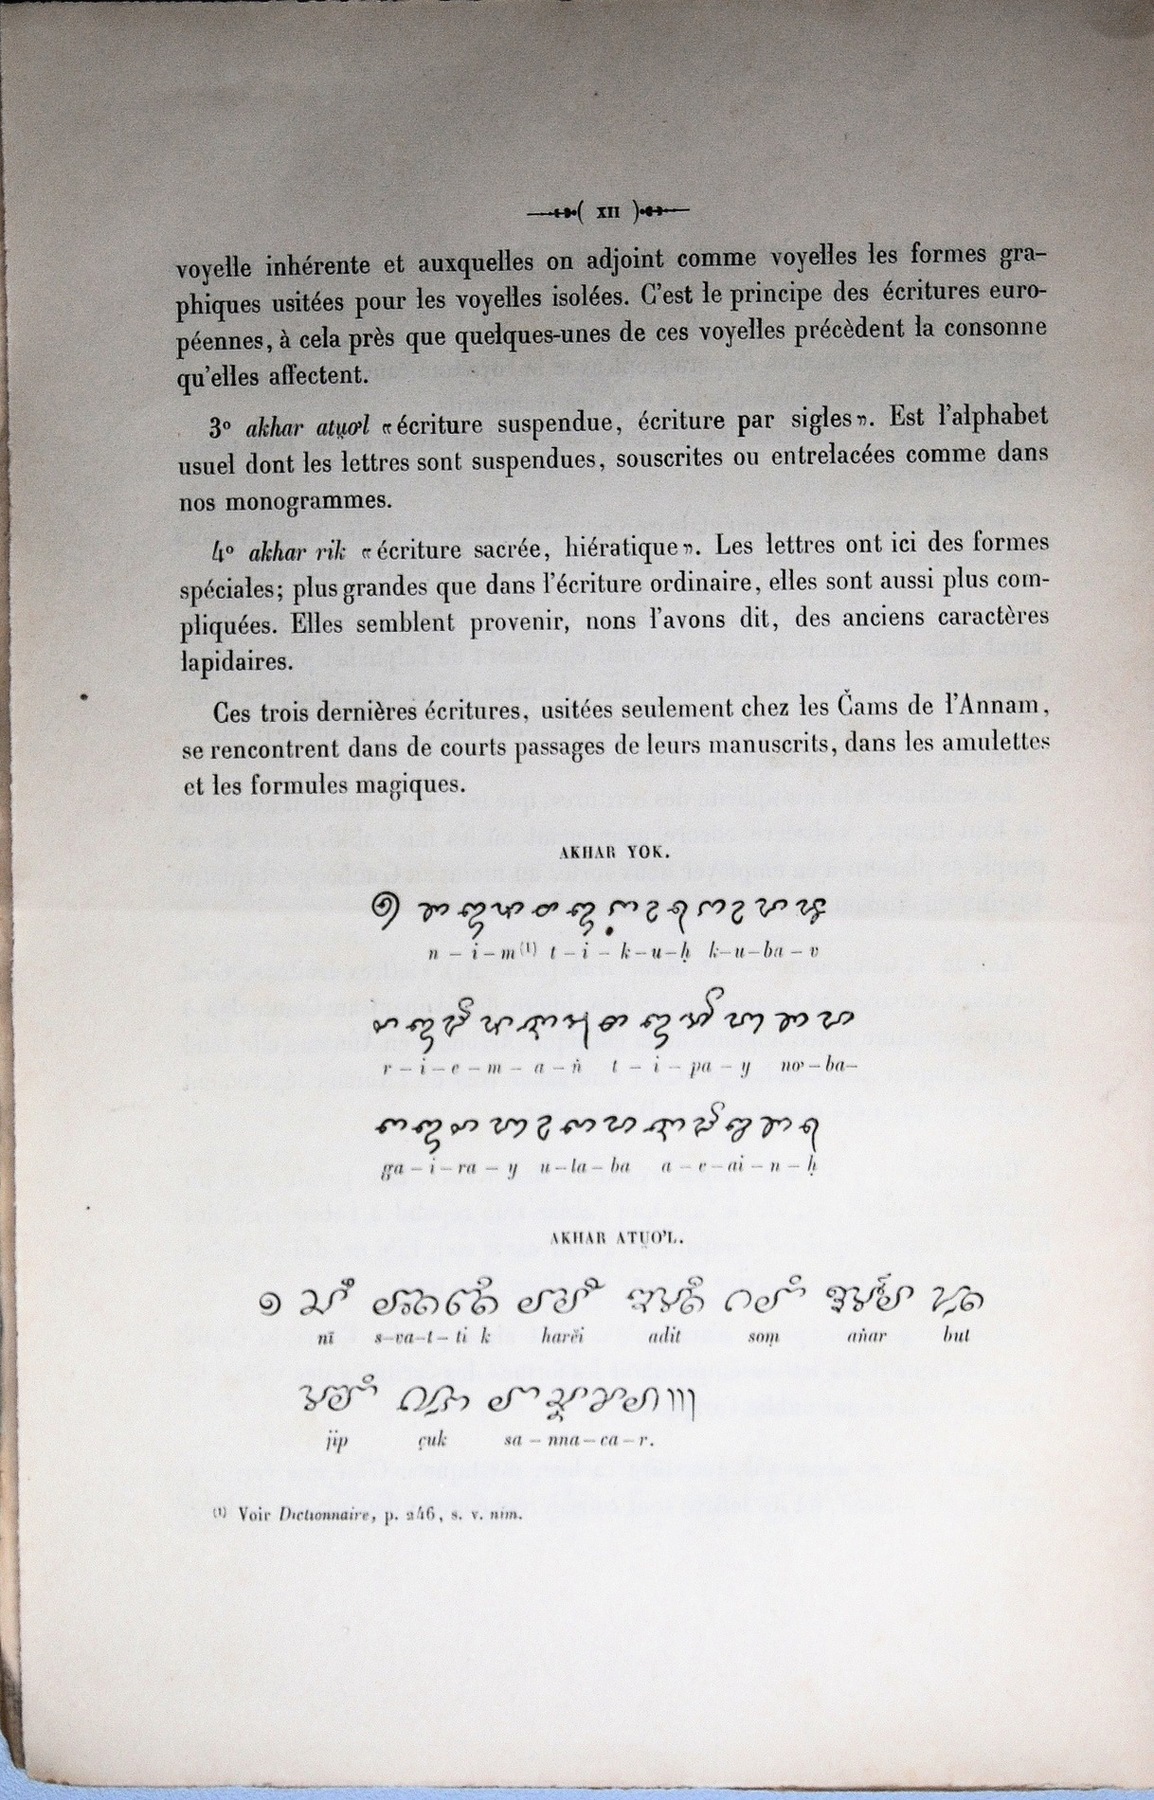 ( XII )
voyelle inhérente et auxquelles on adjoint comme voyelles les formes gra-
phiques usitées pour les voyelles isolées. C'est le principe des écritures euro-
péennes, à cela près que quelques-unes de ces voyelles précèdent la consonne
qu'elles affectent.
3° akhar atu̯o'l «écriture suspendue, écriture par sigles». Est l'alphabet
usuel dont les lettres sont suspendues, souscrites ou entrelacées comme dans
nos monogrammes.
4° akhar rik «écriture sacrée, hiératique». Les lettres ont ici des formes
spéciales; plus grandes que dans l'écriture ordinaire, elles sont aussi plus com-
pliquées. Elles semblent provenir, nons l'avons dit, des anciens caractères
lapidaires.
Ces trois dernières écritures, usitées seulement chez les Čams de l'Annam,
se rencontrent dans de courts passages de leurs manuscrits, dans les amulettes
et les formules magiques.
AKHAR YOK.
n – i – m(1) t – i – k – u – ḥ k – u – ba – v
r – i – e – m – a – ṅ t – i – pa – y no' – ba –
ga – i – ra – y u – la – ba a – e – ai – n – ḥ
AKHAR ATU̯O'L.
nī s – va – t – ti k harĕi adit soṃ aṅar but
jip çuk sa – nna – ca – r.
(1) Voir Dictionnaire, p. 246, s. v. nim.